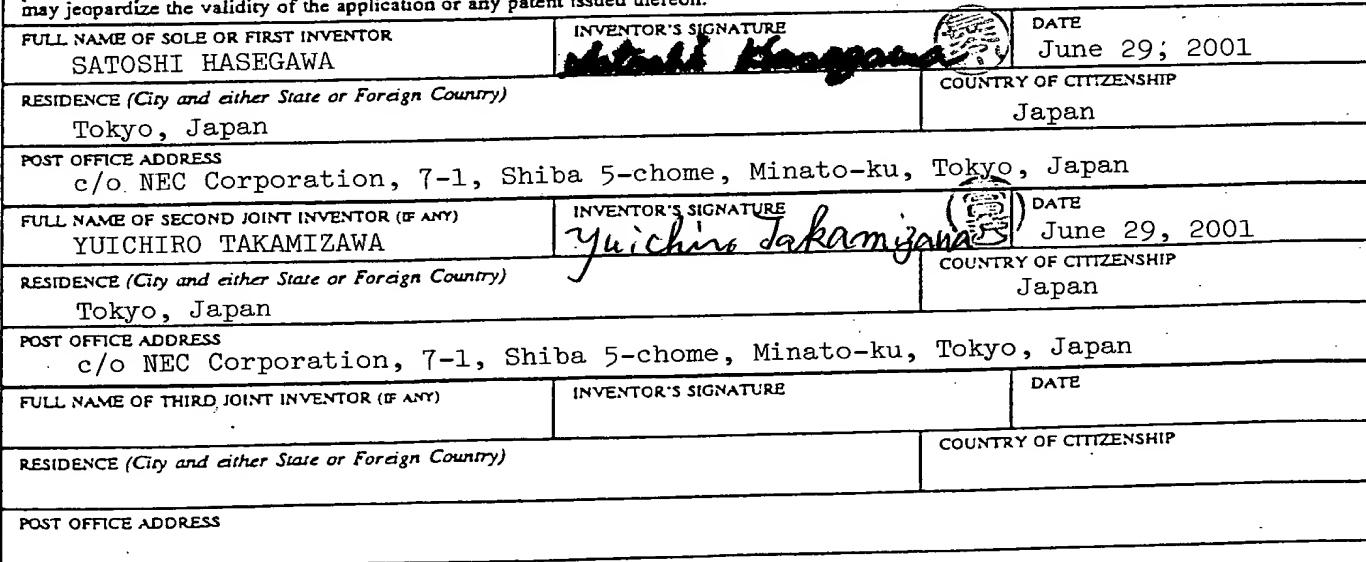 may jeopardize the validity of the application or any patent issued thereon.
FULL NAME OF SOLE OR FIRST INVENTOR
INVENTOR'S SIGNATURE
DATE
SATOSHI HASEGAWA
Satoshi Hasegawa
June 29, 2001
RESIDENCE (City and either State or Foreign Country)
COUNTRY OF CITIZENSHIP
Tokyo, Japan
Japan
POST OFFICE ADDRESS
c/o NEC Corporation, 7-1, Shiba 5-chome, Minato-ku, Tokyo, Japan
FULL NAME OF SECOND JOINT INVENTOR (IF ANY)
INVENTOR'S SIGNATURE
DATE
YUICHIRO TAKAMIZAWA
Yuichiro Takamizawa
June 29, 2001
RESIDENCE (City and either State or Foreign Country)
COUNTRY OF CITIZENSHIP
Tokyo, Japan
Japan
POST OFFICE ADDRESS
c/o NEC Corporation, 7-1, Shiba 5-chome, Minato-ku, Tokyo, Japan
FULL NAME OF THIRD JOINT INVENTOR (IF ANY)
INVENTOR'S SIGNATURE
DATE
RESIDENCE (City and either State or Foreign Country)
COUNTRY OF CITIZENSHIP
POST OFFICE ADDRESS